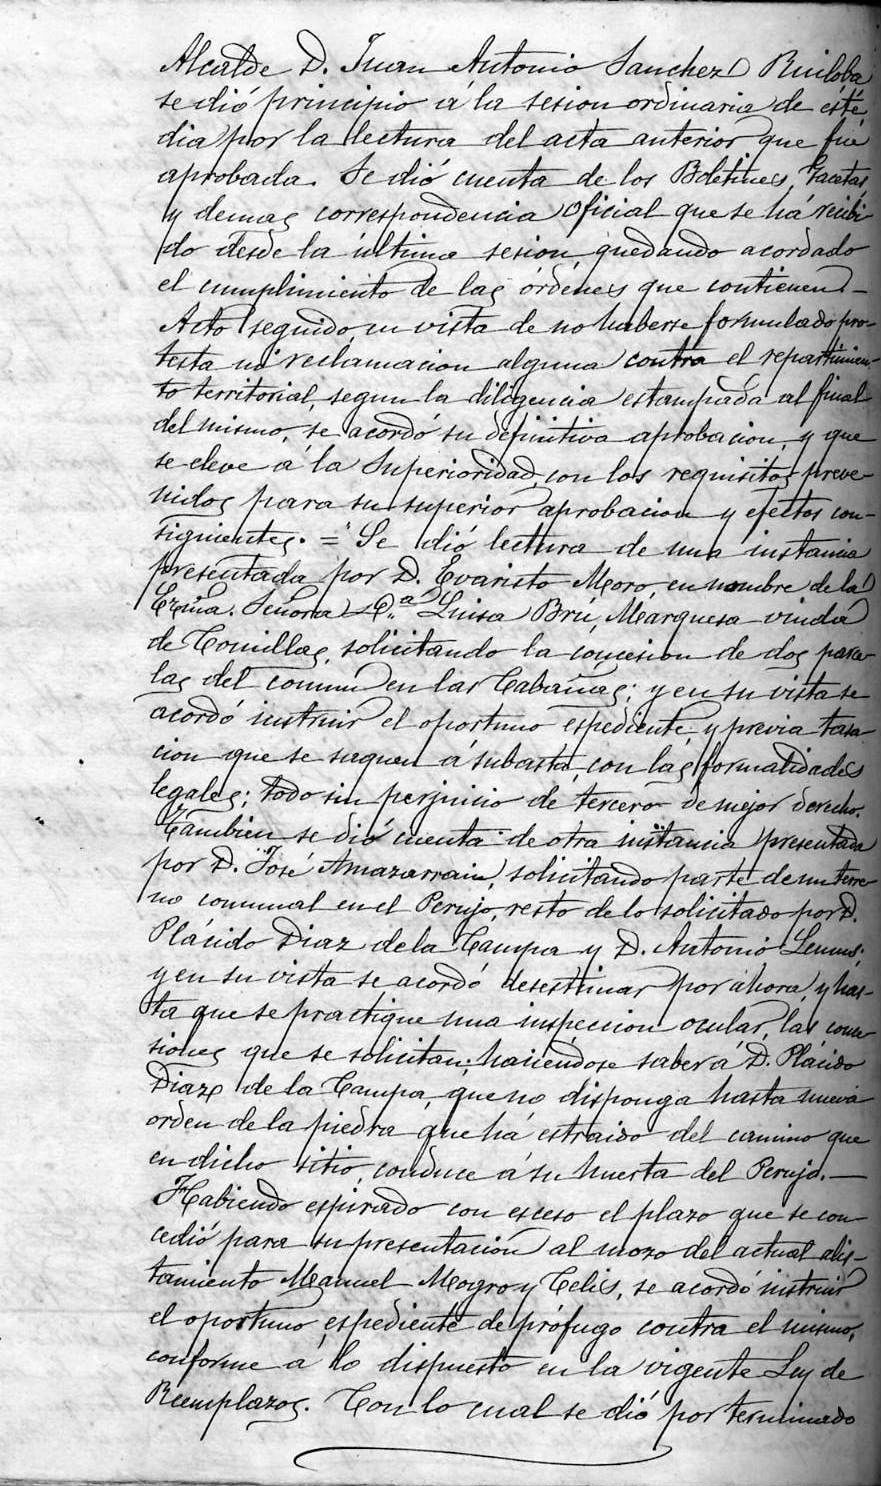 Alcalde D. Juan Antonio Sanchez Ruiloba
se dió principio á la sesion ordinaria de éste
dia por la lectura del acta anterior que fué
aprobada. Se dió cuenta de los Boletines, Gacetas
y demas correspondencia oficial que se há recibi-
do desde la última sesion, quedando acordado
el cumplimiento de las órdenes que contienen. —
Acto seguido, en vista de no haberse formulado pro-
testa ni reclamacion alguna contra el repartimien-
to territorial, segun la diligencia estampada al final
del mismo, se acordó su definitiva aprobacion, y que
se eleve á la Superioridad, con los requisitos preve-
nidos para su superior aprobacion y efectos con-
siguientes. = Se dió lectura de una instancia
presentada por D. Evaristo Moro, en nombre de la
Ecxma. Señora D.ª Luisa Brú, Marquesa viuda
de Comillas, solicitando la concesion de dos parce-
las del comun en las Cabañas; y en su vista se
acordó instruir el oportuno espediente, y previa tasa-
cion que se saquen á subasta, con las formalidades
legales; todo sin perjuicio de tercero de mejor derecho.
Tambien se dió cuenta de otra instancia presentada
por D. José Amazarrain, solicitando parte de un terre-
no comunal en el Perujo, resto de lo solicitado por D.
Plácido Diaz de la Campa y D. Antonio
y en su vista se acordó desestimar por ahora, y has-
ta que se practique una inspeccion ocular, las conce-
siones que se solicitan; haciendose saber á D. Plácido
Diaz de la Campa, que no disponga hasta nueva
orden de la piedra que há estraido del camino que
en dicho sitio, conduce á su huerta del Perujo. —
Habiendo espirado con esceso el plazo que se con-
cedió para su presentacion al mozo del actual alis-
tamiento Manuel Mogro y Celis, se acordó instruir
el oportuno espediente de prófugo contra el mismo,
conforme á lo dispuesto en la vigente Ley de
Reemplazos. Con lo cual se dió por terminado